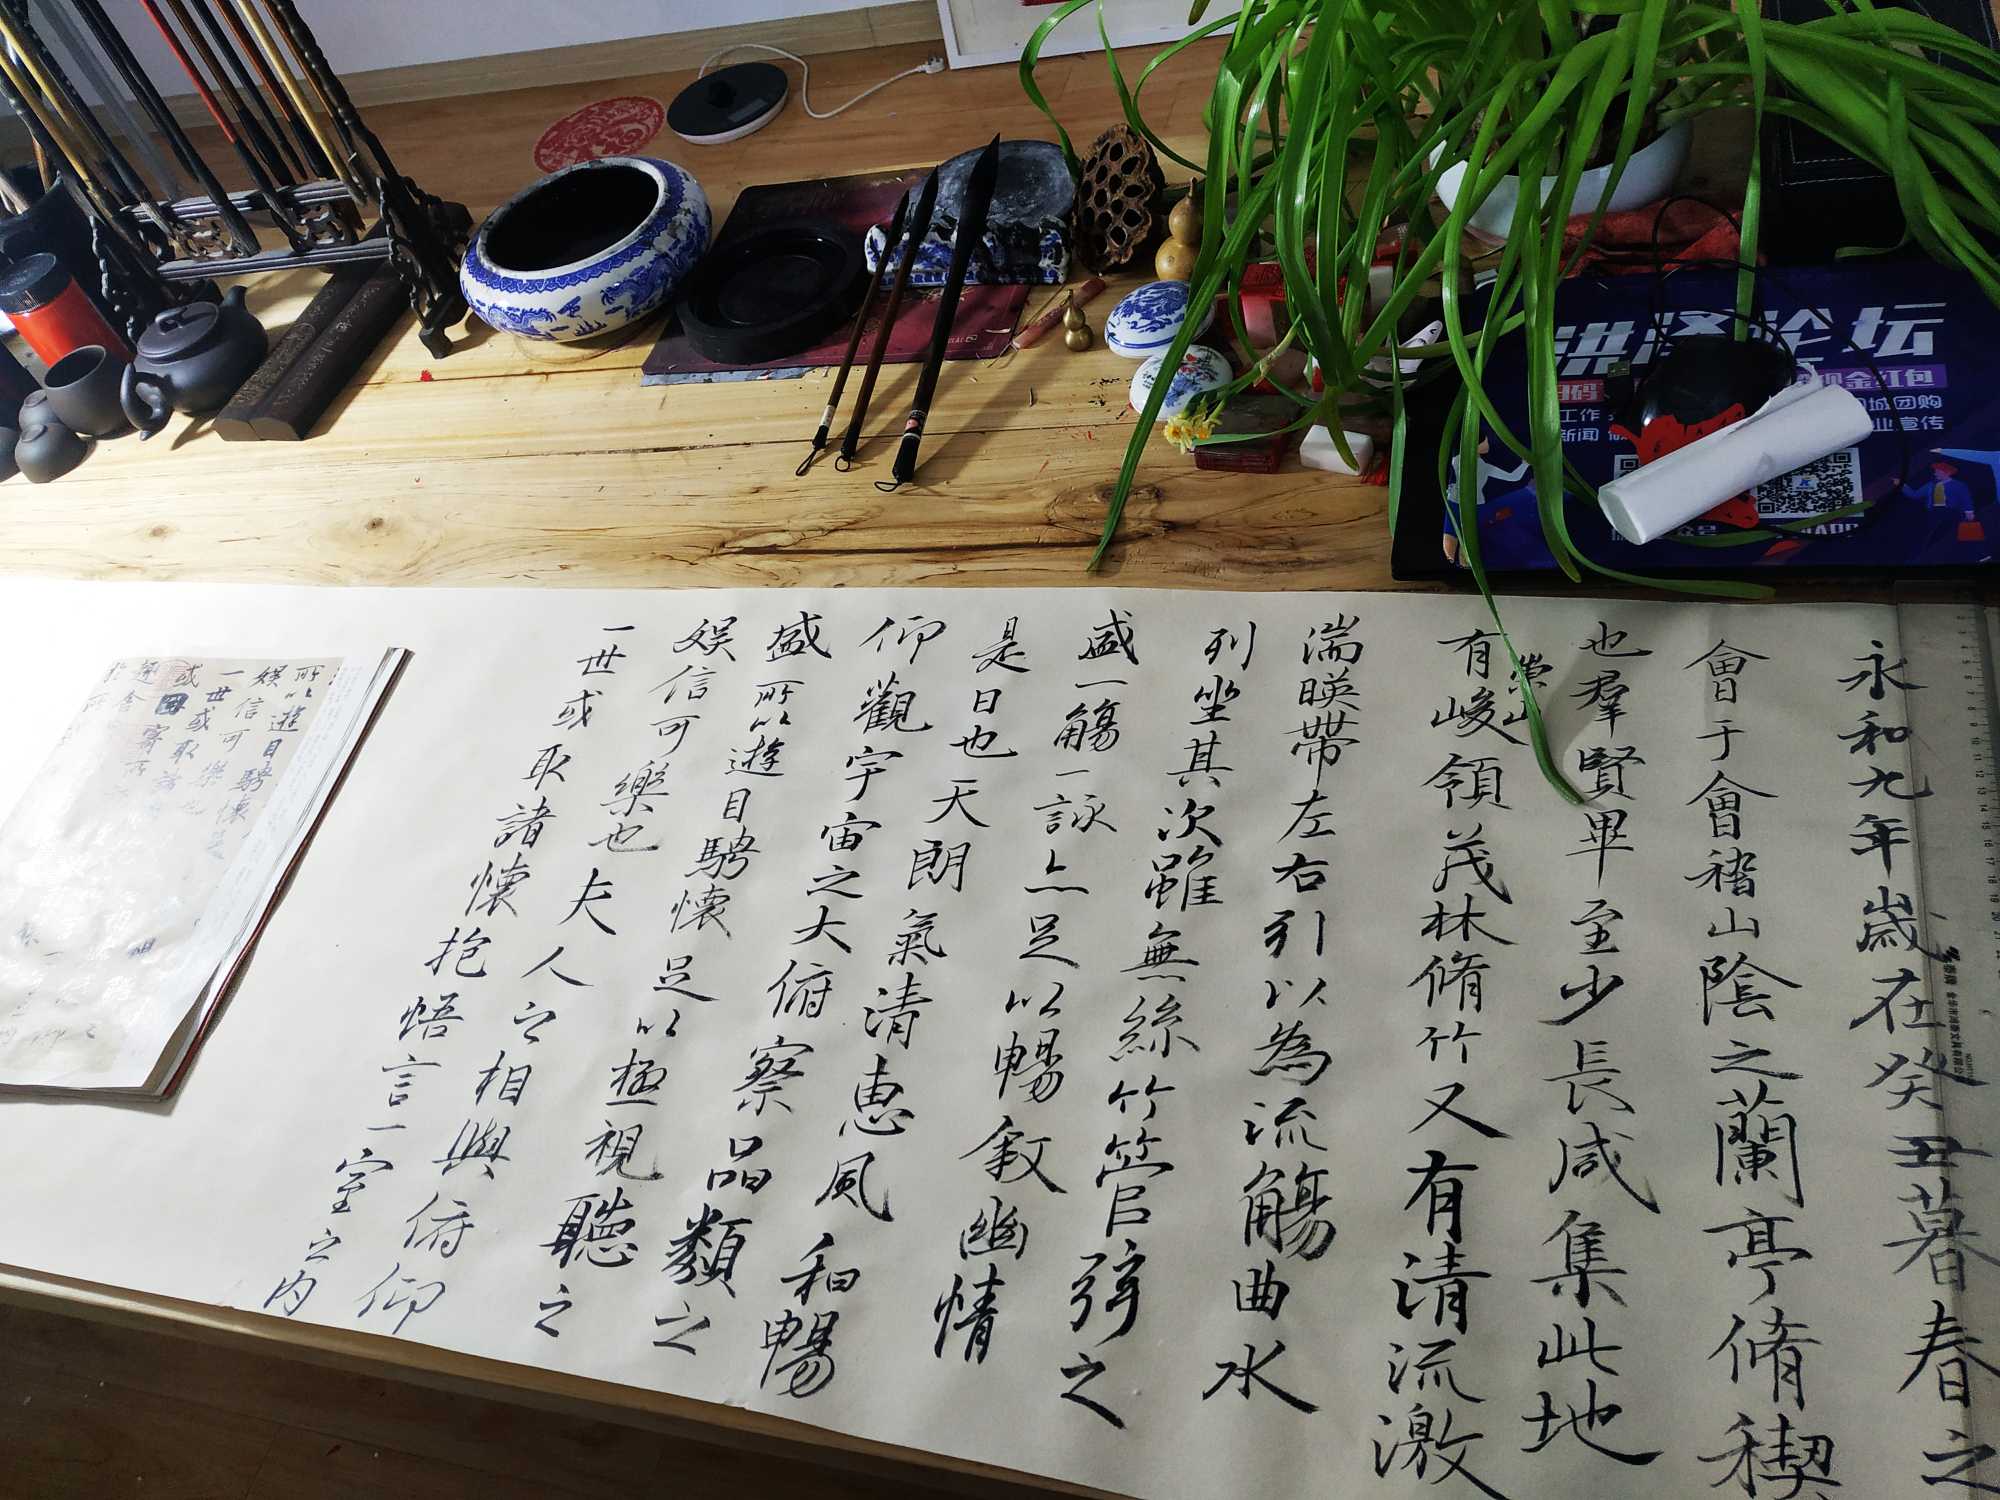 永和九年歲在癸丑暮春之
會于會稽山陰之蘭亭脩稧
也羣賢畢至少長咸集此地
崇山
有峻領茂林脩竹又有清流激
湍暎帶左右引以為流觴曲水
列坐其次雖無絲竹管弦之
盛一觴一詠亦足以暢敘幽情
是日也天朗氣清惠風和暢
仰觀宇宙之大俯察品類之
盛所以遊目騁懷足以極視聽之
娛信可樂也夫人之相與俯仰
一世或取諸懷抱悟言一室之内
所以遊目騁懷足
娛信可樂也
一世或取諸
洪泽论坛
现金红包
工作
同城团购
新闻
业宣传